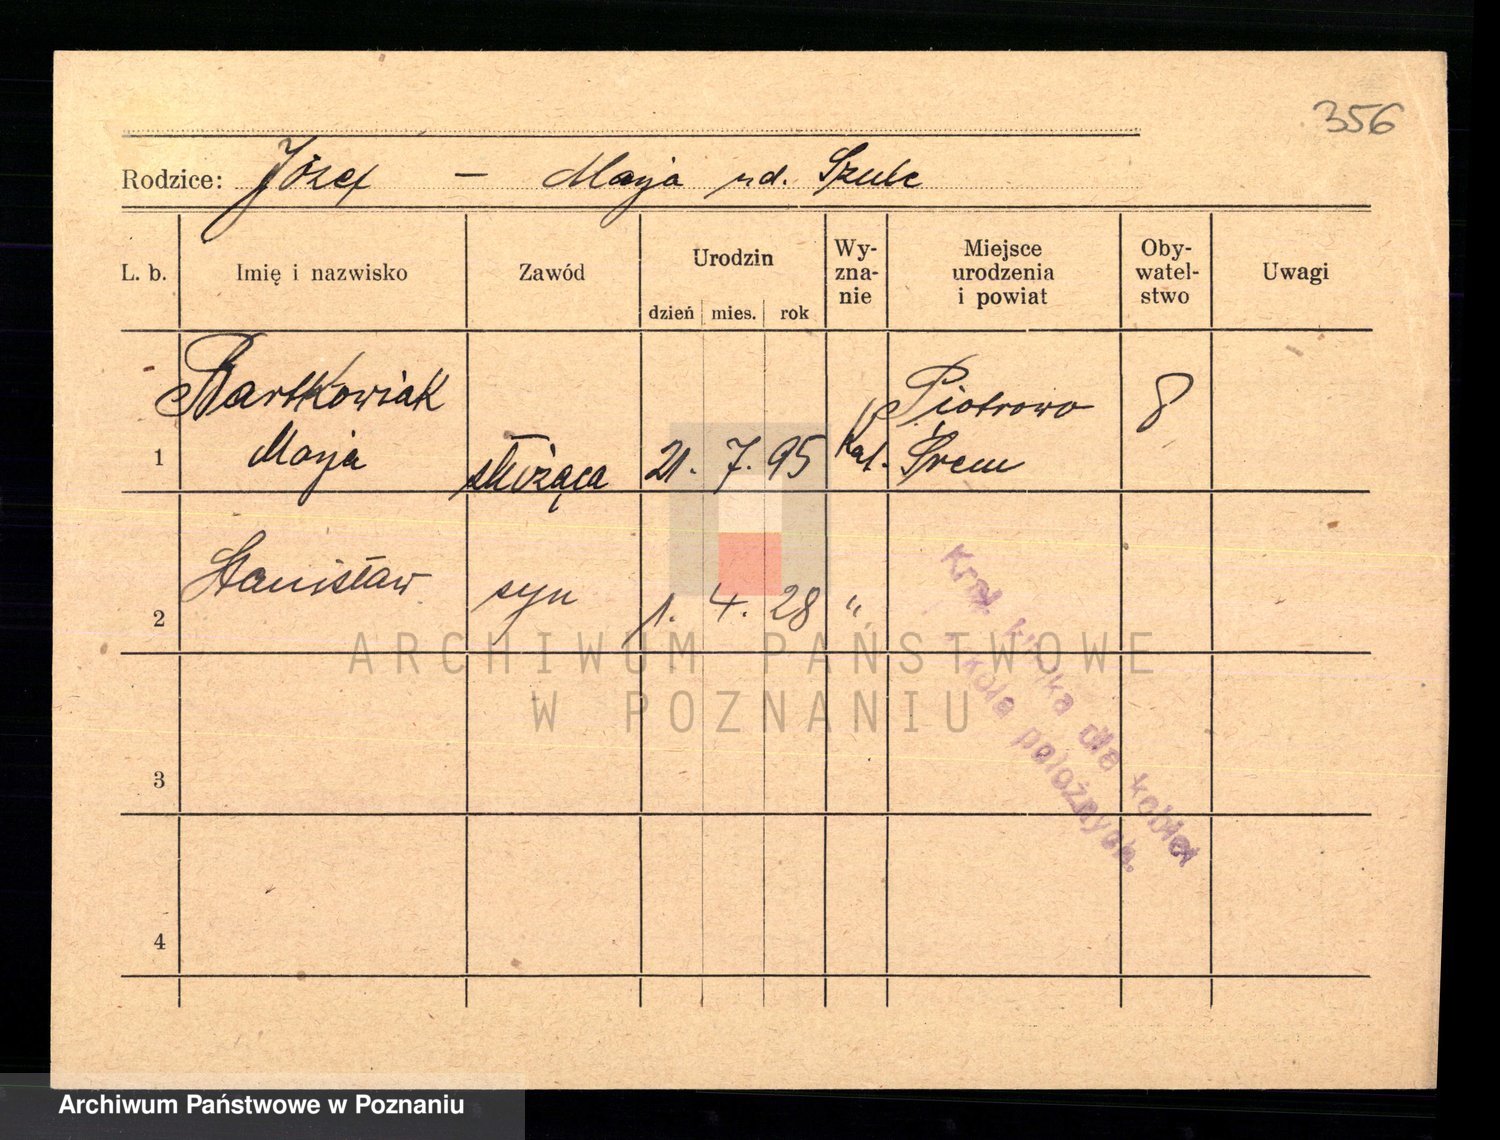 356
Rodzice: Józef – Marja ud. Szulc
L. b. Imię i nazwisko Zawód Urodzin Wy-zna-nie Miejsce urodzenia i powiat Oby-watel-stwo Uwagi
dzień mies. rok
Bartkowiak Piotrowo
1 Marja służąca 21. 7. 95 Kat. Śrem
2 Stanisław syn 1. 4. 28 "
Kraj. klinika dla kobiet
szkoła położnych.
3
4
ARCHIWUM PAŃSTWOWE
W POZNANIU
Archiwum Państwowe w Poznaniu